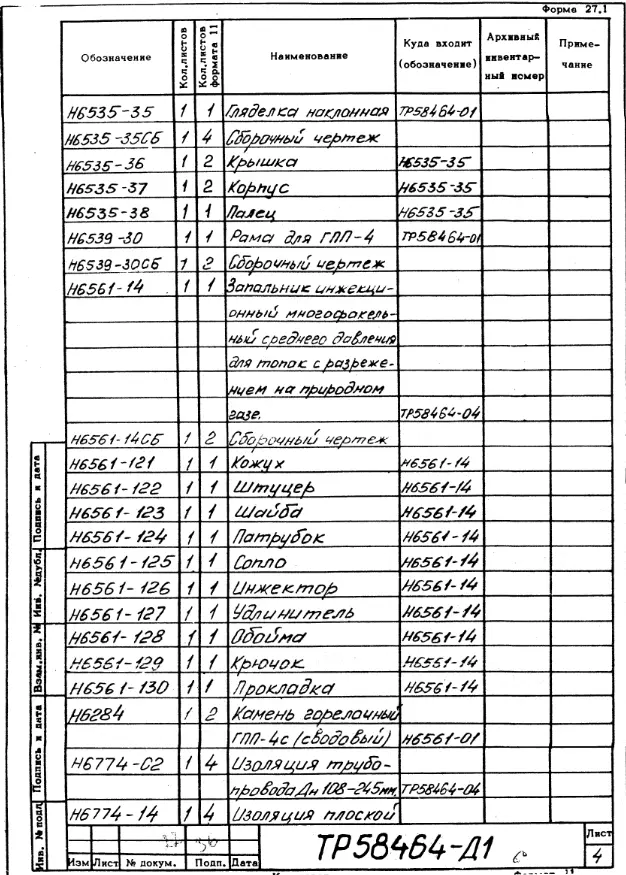 Форма 27.1
Обозначение Кол.листов Кол.листов формата 11 Наименование Куда входит (обозначение) Архивный инвентарный номер Примечание
Н6535-35 1 1 Гляделка наклонная ТР58464-01
Н6535-35СБ 1 4 Сборочный чертеж
Н6535-36 1 2 Крышка Н6535-35
Н6535-37 1 2 Корпус Н6535-35
Н6535-38 1 1 Палец Н6535-35
Н6539-30 1 1 Рама для ГПП-4 ТР58464-01
Н6539-30СБ 1 2 Сборочный чертеж
Н6561-14 1 1 Запальник инжекци-
онный многофакель-
ный среднего давления
для топок с разреже-
нием на природном
газе. ТР58464-04
Н6561-14СБ 1 2 Сборочный чертеж
Н6561-121 1 1 Кожух Н6561-14
Н6561-122 1 1 Штуцер Н6561-14
Н6561-123 1 1 Шайба Н6561-14
Н6561-124 1 1 Патрубок Н6561-14
Н6561-125 1 1 Сопло Н6561-14
Н6561-126 1 1 Инжектор Н6561-14
Н6561-127 1 1 Удлинитель Н6561-14
Н6561-128 1 1 Обойма Н6561-14
Н6561-129 1 1 Крючок Н6561-14
Н6561-130 1 1 Прокладка Н6561-14
Н6284 1 2 Камень горелочный
ГПП-4с (сводовый) Н6561-01
Н6774-02 1 4 Изоляция трубо-
провода Дн 108-245мм. ТР58464-04
Н6774-14 1 4 Изоляция плоской
Инв. №подл Подпись и дата Взам.инв. № Инв. №дубл. Подпись и дата
Изм Лист № докум. Подп. Дата
ТР58464-Д1
Лист
4
Формат 11